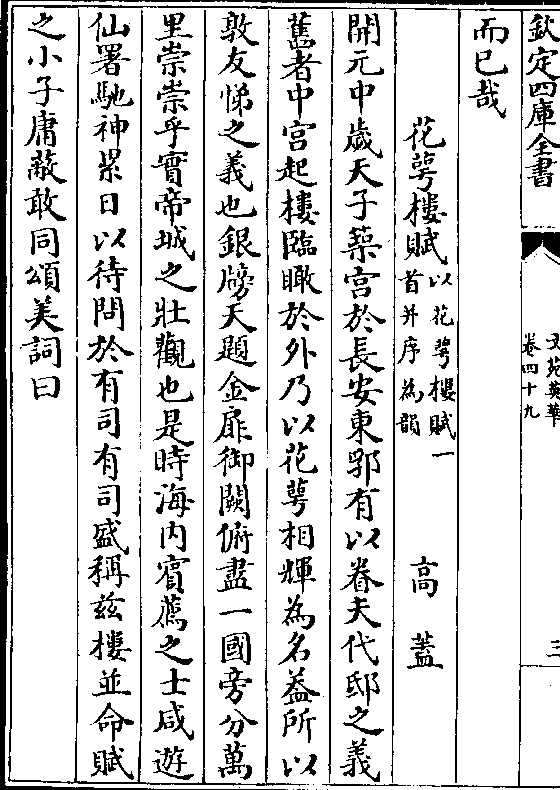 欽定四庫全書
文苑英華
卷四十九
三
而已哉
花萼樓賦以花萼樓賦一首并序為韻 高蓋
開元中歲天子築宮於長安東郛有以眷夫代邸之義
舊者中宮起樓臨瞰於外乃以花萼相輝為名益所以
敦友悌之義也銀牓天題金扉御闕俯盡一國旁分萬
里崇崇乎實帝城之壯觀也是時海內賓薦之士咸遊
仙署馳神累日以待問於有司有司盛稱茲樓並命賦
之小子庸蔽敢同頌美詞曰